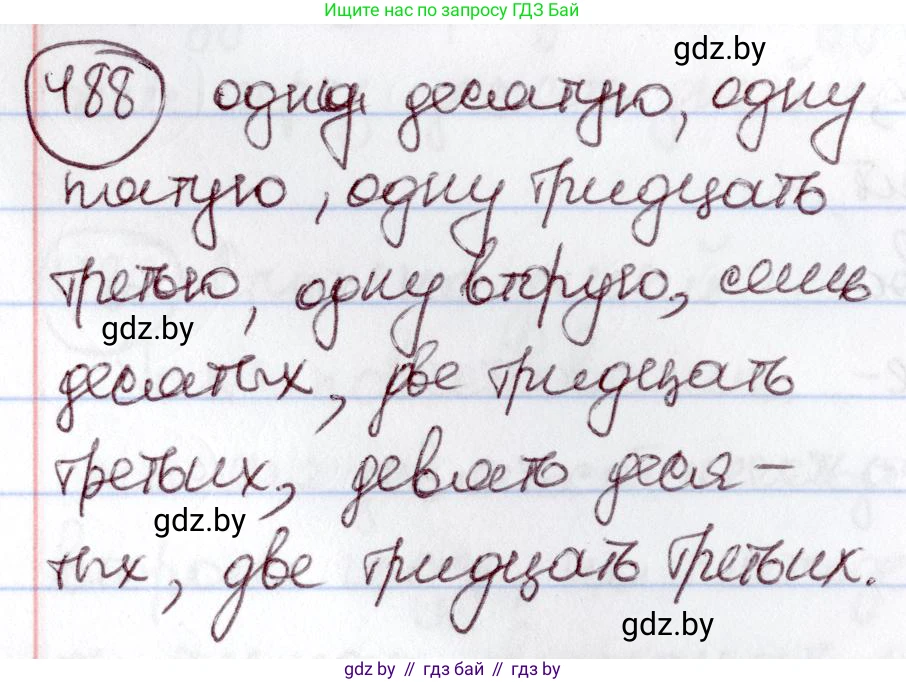 Ищите нас по запросу ГДЗ Бай
gdz.by
488 одну десятую, одну
пятую, одну тридцать
третью, одну вторую, семь
gdz.by
десятых, две тридцать
третьих, девять деся-
gdz.by
тых, две тридцать третьих.
gdz.by
gdz.by // гдз бай // гдз by